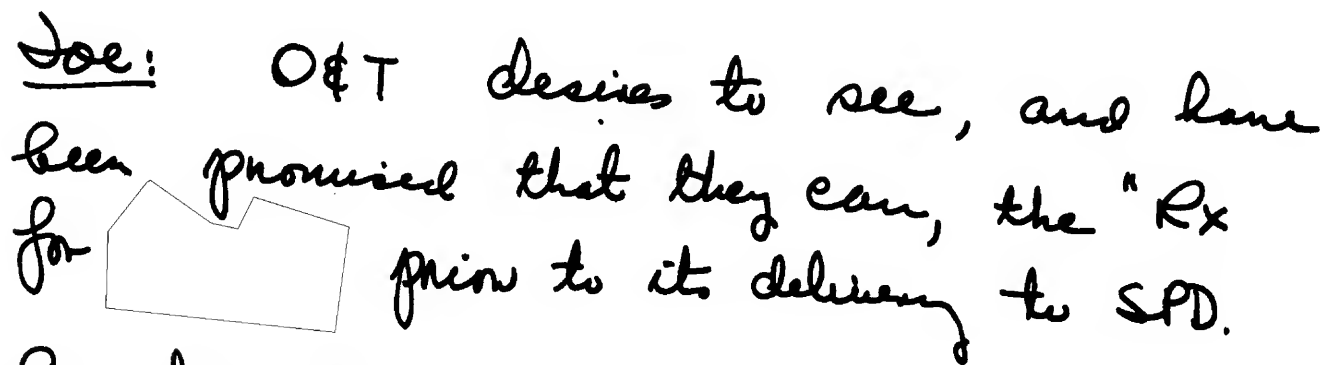 Joe: O&T desires to see, and have
been promised that they can, the "Rx
for prior to its delivery to SPD.